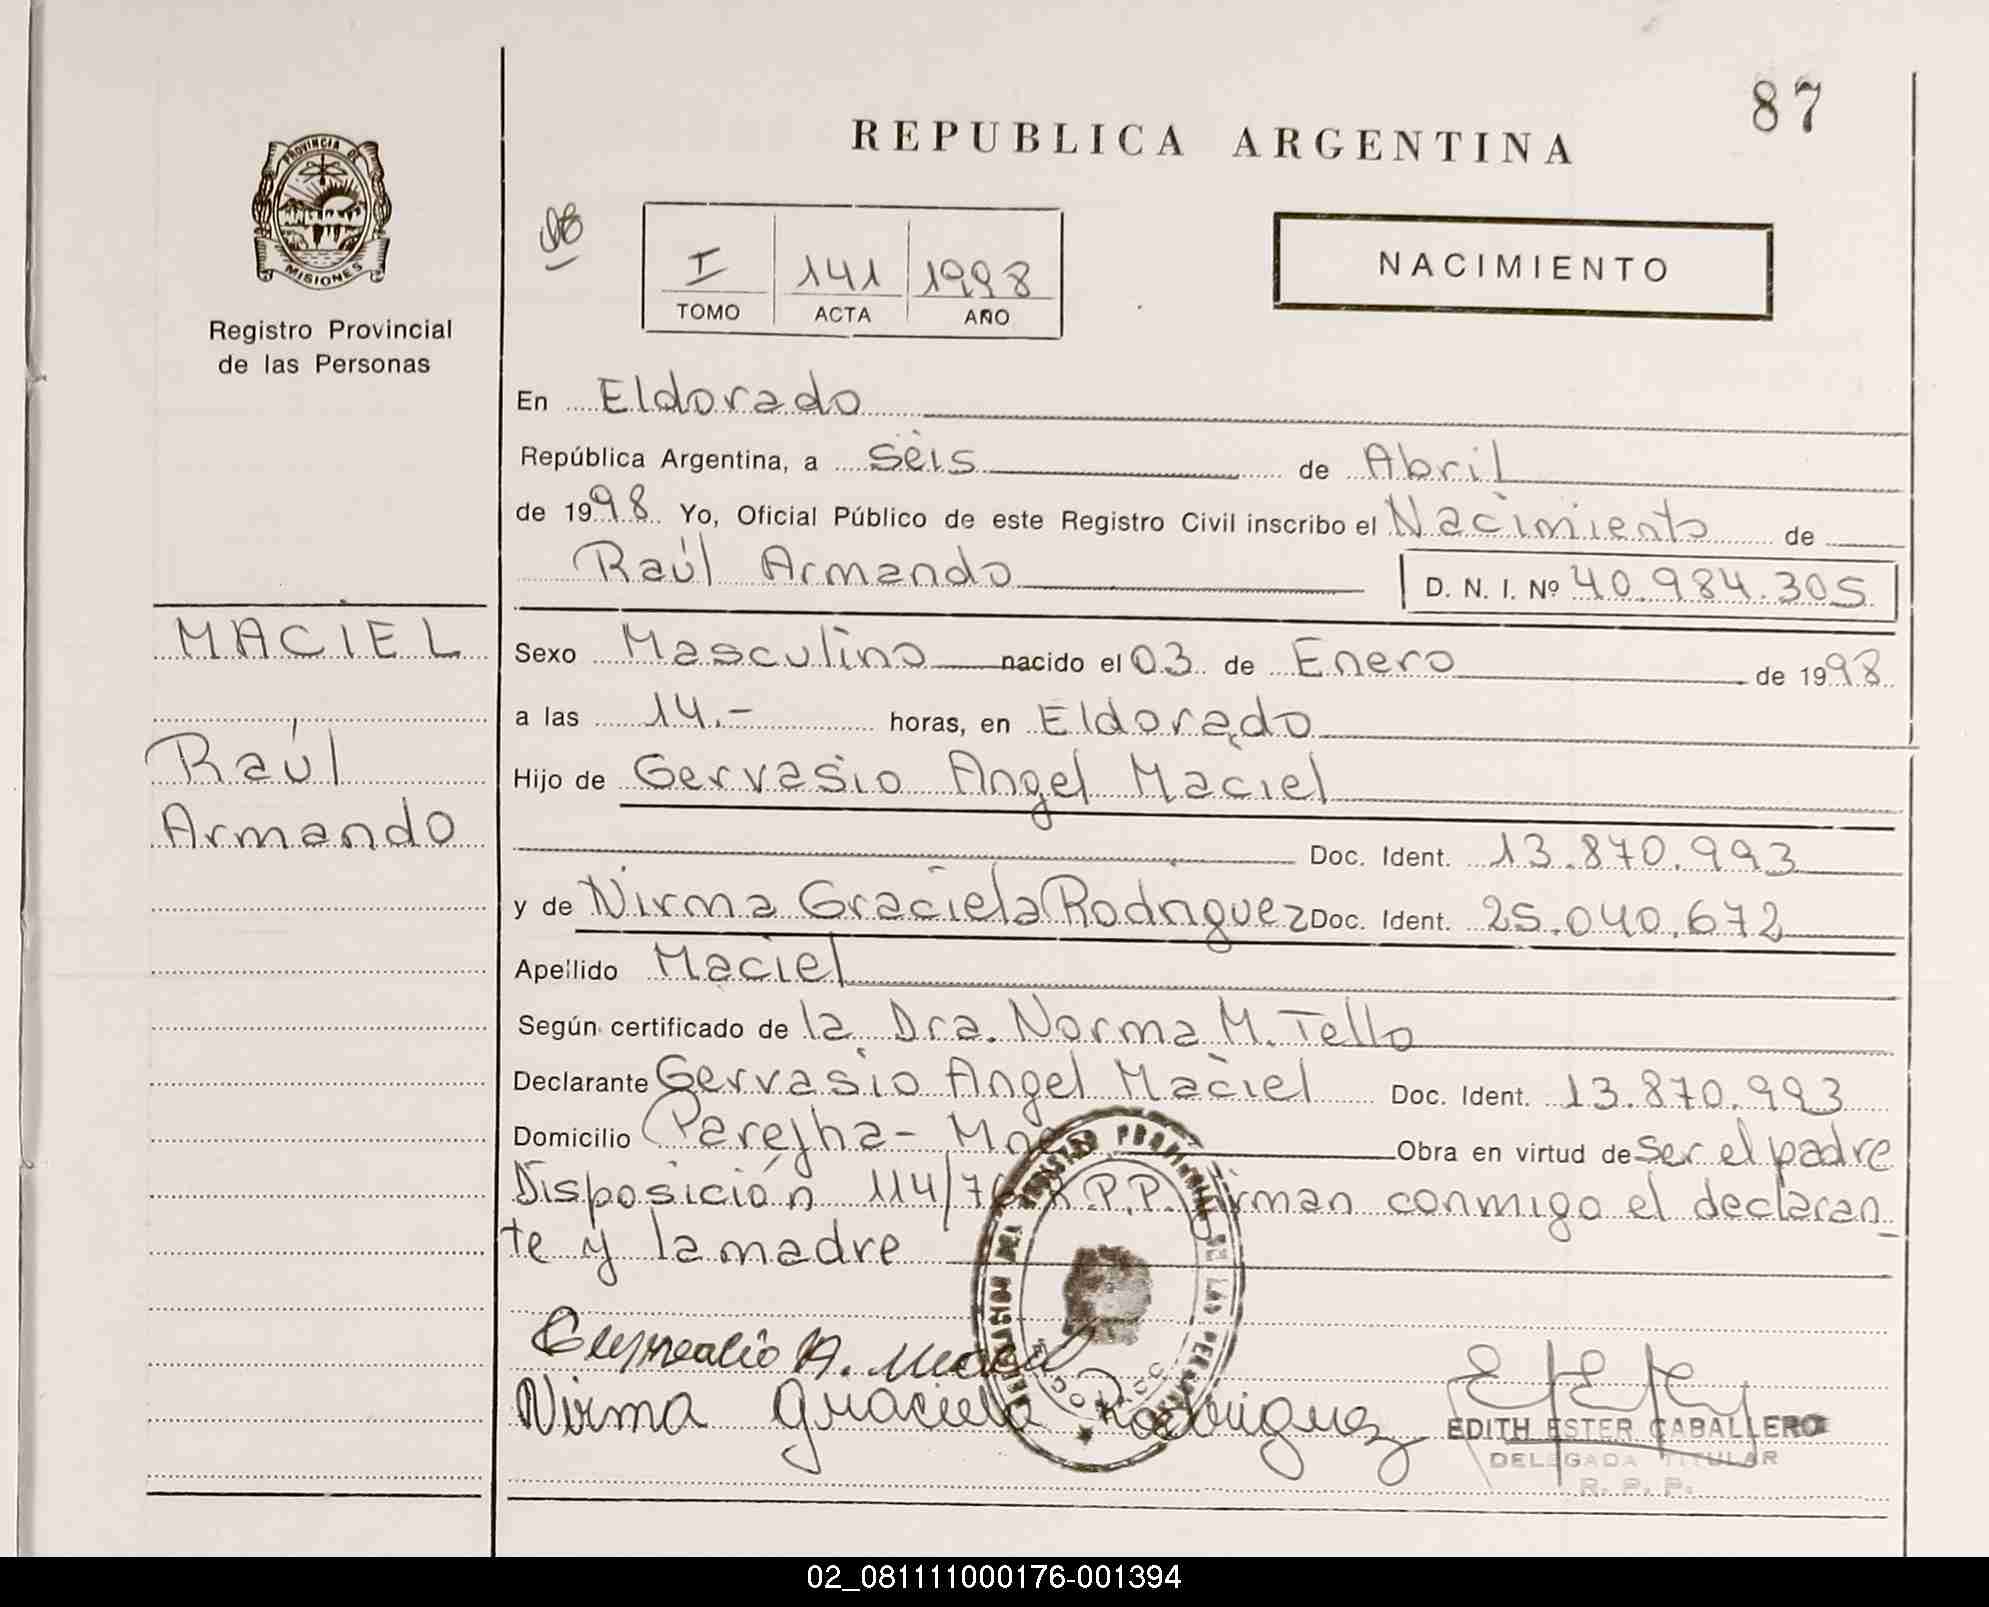 87
REPUBLICA ARGENTINA
PROVINCIA DE
MISIONES
Registro Provincial
de las Personas
I 141 1998
TOMO ACTA AÑO
NACIMIENTO
En Eldorado
República Argentina, a seis de Abril
de 1998 Yo, Oficial Público de este Registro Civil inscribo el Nacimiento de
Raúl Armando D. N. I. Nº 40.984.305
MACIEL
Raúl
Armando
Sexo Masculino nacido el 03 de Enero de 1998
a las 14.- horas, en Eldorado
Hijo de Gervasio Angel Maciel
Doc. Ident. 13.870.993
y de Nirma Graciela Rodriguez Doc. Ident. 25.040.672
Apellido Maciel
Según certificado de la Dra. Norma M. Tello
Declarante Gervasio Angel Maciel Doc. Ident. 13.870.993
Domicilio Parejha - Obra en virtud de ser el padre
Disposición 114/ R.P.P. Firman conmigo el declaran-
te y la madre
A. Maciel
Nirma Graciela Rodriguez
EDITH ESTER CABALLERO
DELEGADA TITULAR
R. P. P.
02_081111000176-001394